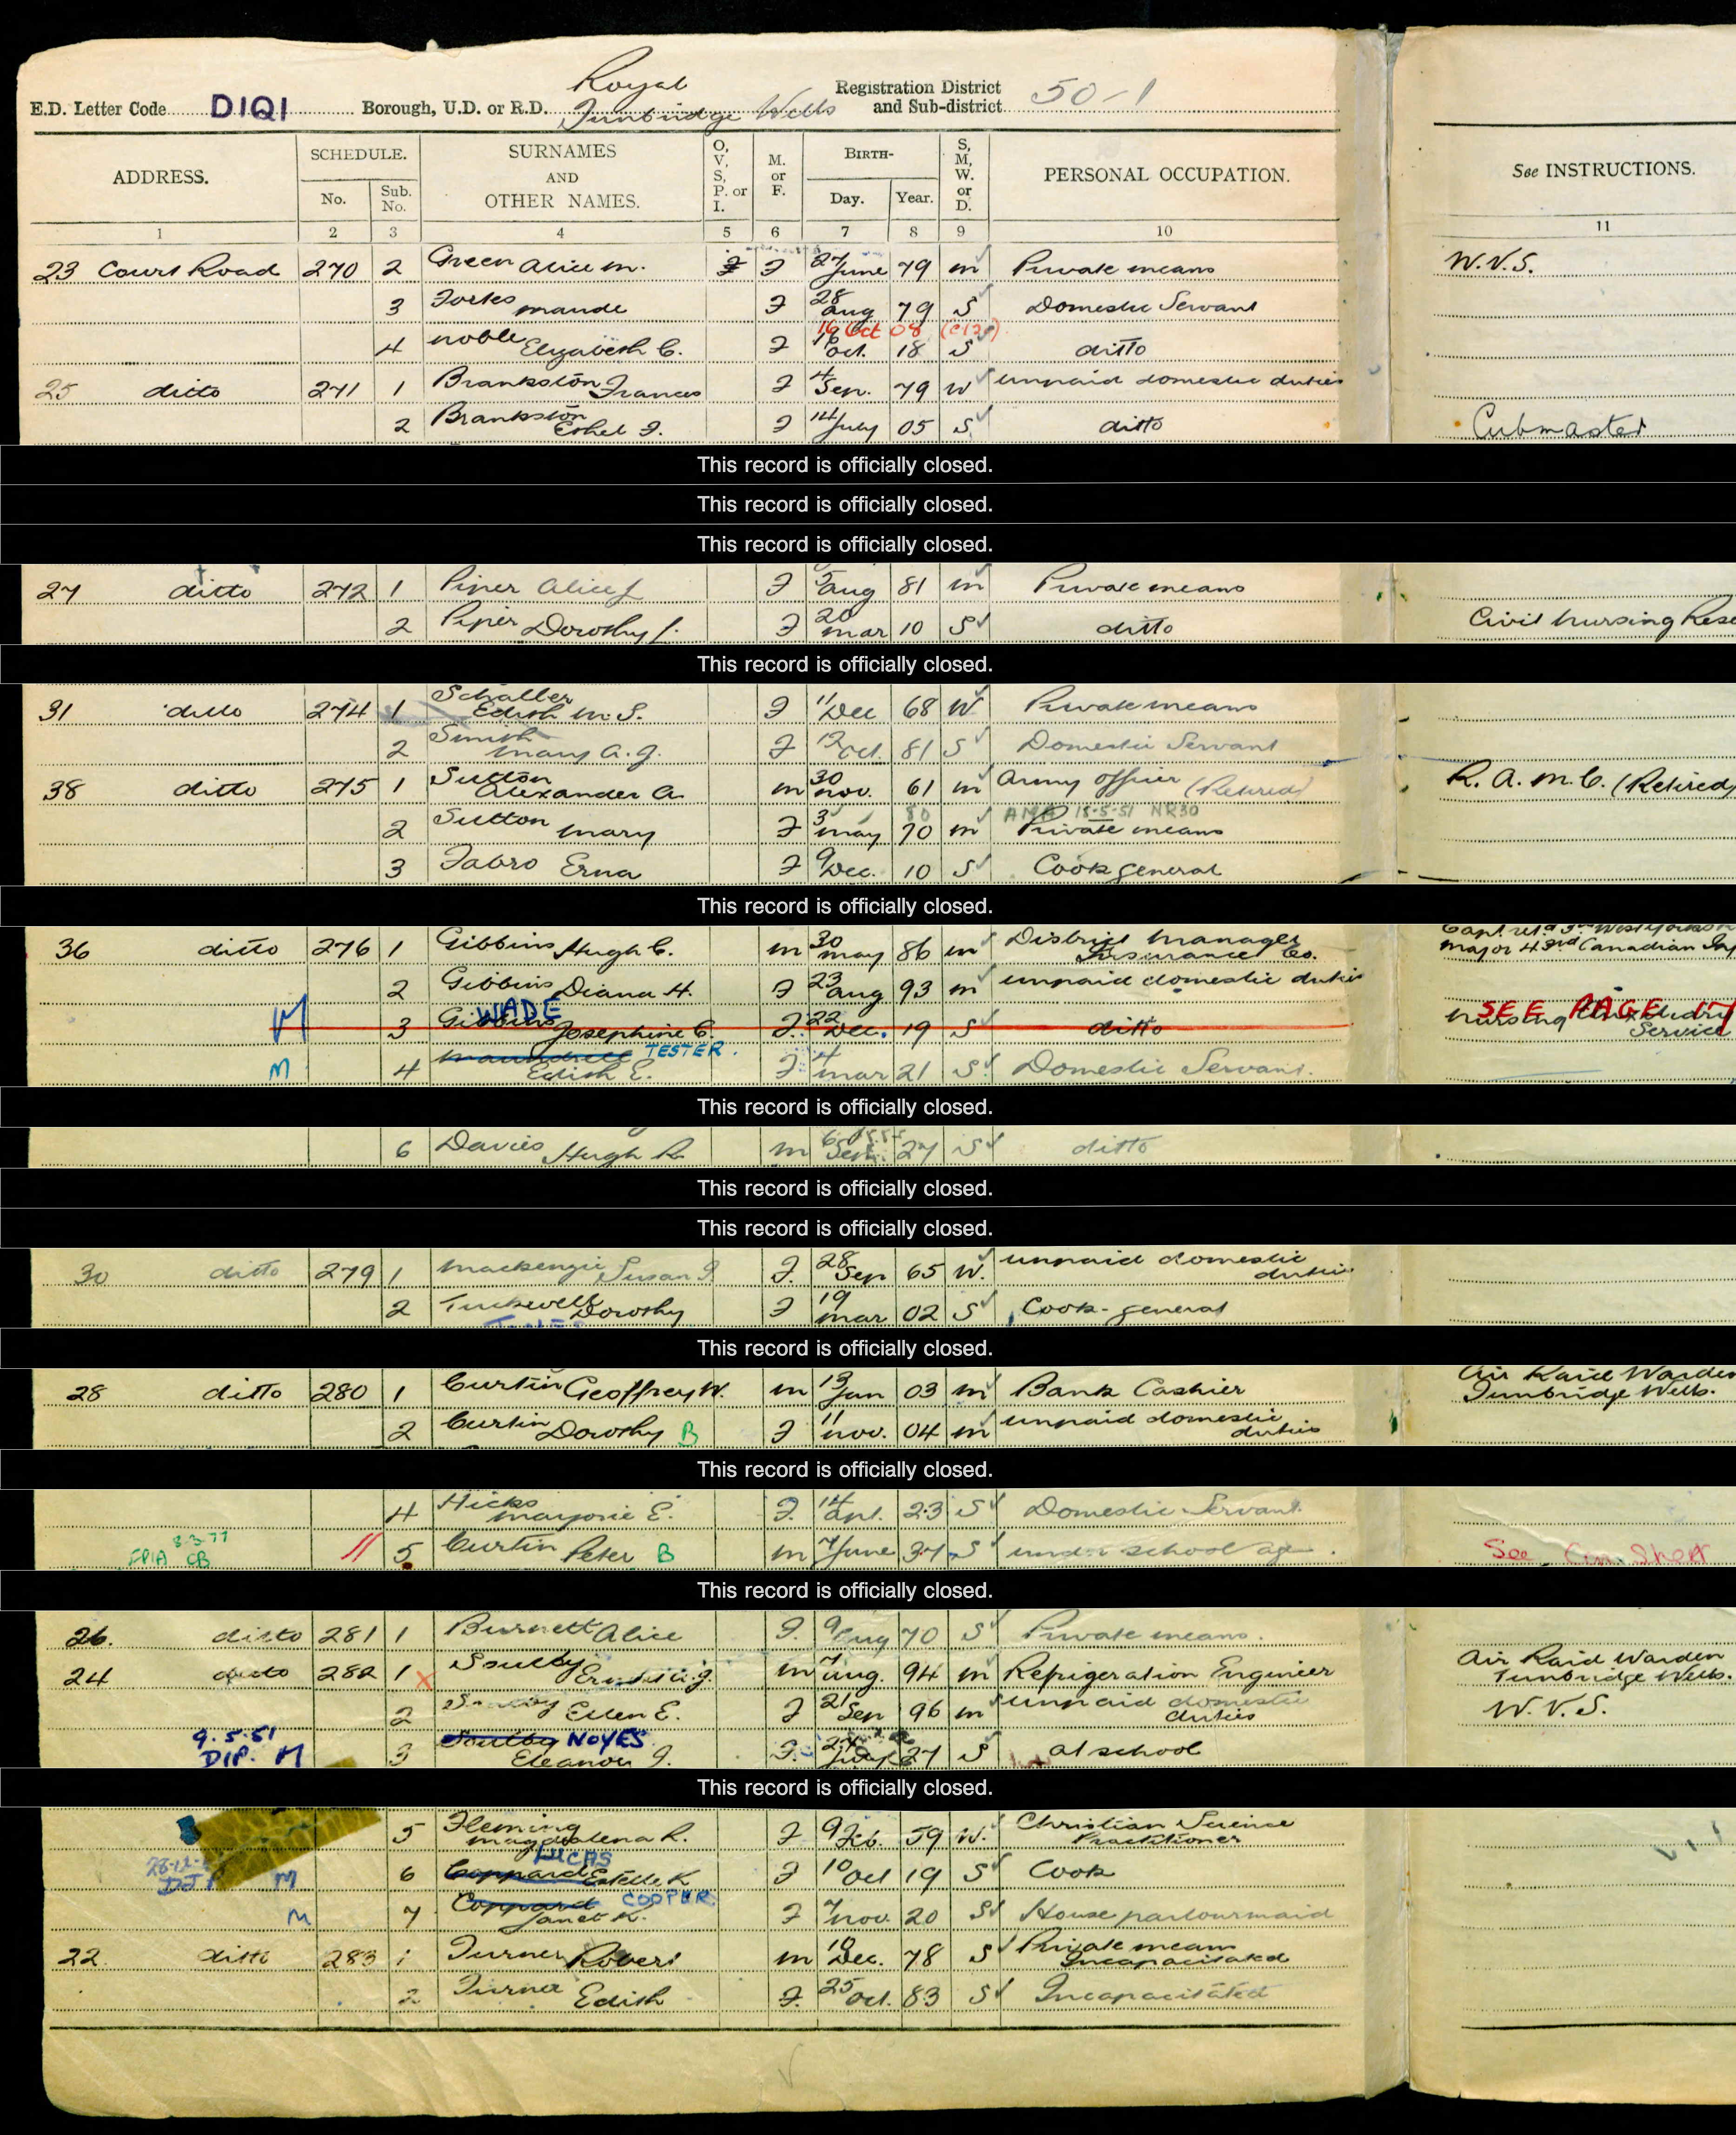 Royal
E.D. Letter Code D1Q1 Borough, U.D. or R.D. Tunbridge Wells Registration District and Sub-district 50-1
ADDRESS. SCHEDULE. No. Sub. No. SURNAMES AND OTHER NAMES. O, V, S, P. or I. M. or F. BIRTH- Day. Year. S, M, W. or D. PERSONAL OCCUPATION. See INSTRUCTIONS.
1 2 3 4 5 6 7 8 9 10 11
23 Court Road 270 2 Green Alice M. F 27 June 79 M Private means W.V.S.
3 Maude F 28 Aug 79 S Domestic Servant
16 Oct 08 (C13)
4 Noble Elizabeth C. F Oct. 18 S ditto
25 ditto 271 1 Brankston Frances F 4 Sep. 79 W unpaid domestic duties
2 Brankston Ethel F. F 14 July 05 S ditto Cubmaster
This record is officially closed.
This record is officially closed.
This record is officially closed.
27 ditto 272 1 Piper Alice F 5 Aug 81 M Private means
2 Piper Dorothy F 20 Mar 10 S ditto Civil Nursing Rese
This record is officially closed.
31 ditto 274 1 Schaller Edith M. S. F 11 Dec 68 W Private means
2 Smith Mary A. J. F Oct. 81 S Domestic Servant
38 ditto 275 1 Sutton Alexander A. M 30 Nov. 61 M Army Officer (Retired) R.A.M.C. (Retired)
80 AMA 15-5-51 NR30
2 Sutton Mary F 3 May 70 M Private means
3 Fabro Erna F 9 Dec. 10 S Cook general
This record is officially closed.
36 ditto 276 1 Gibbins Hugh C. M 30 May 86 M District Manager Insurance Co. Major 43rd Canadian
2 Gibbins Diana H. F 23 Aug 93 M unpaid domestic duties
WADE
M 3 Gibbins Josephine C. F. 22 Dec. 19 S ditto SEE PAGE 17 Nursing Auxiliary Service
M 4 TESTER. Edith E. F. 4 Mar 21 S. Domestic Servant.
This record is officially closed.
6 Davies Hugh R. M 6 Sep. 27 S ditto
This record is officially closed.
This record is officially closed.
30 ditto 279 1 Mackenzie Susan F. 28 Sep 65 W. unpaid domestic duties
2 Tuckwell Dorothy F 19 Mar 02 S Cook-general
This record is officially closed.
28 ditto 280 1 Curtin Geoffrey W. M 13 Jan 03 M Bank Cashier Air Raid Warden Tunbridge Wells.
2 Curtin Dorothy B F 11 Nov. 04 M unpaid domestic duties
This record is officially closed.
4 Hicks Marjorie E. F. 14 Apl. 23 S Domestic Servant.
3-3-77
CB 5 Curtin Peter B M 7 June 37 S under school age. See Con. Sheet
This record is officially closed.
26. ditto 281 1 Burnett Alice F. 9 Aug 70 S Private means.
24 ditto 282 1 X Soulby M 7 Aug. 94 M Refrigeration Engineer Air Raid Warden Tunbridge Wells.
2 Soulby Ellen E. F 21 Sep 96 M unpaid domestic duties W.V.S.
9.5.51
DIP. M 3 Soulby NOYES Eleanor J. F. July 27 S at school
This record is officially closed.
5 Fleming Magdalena R. F 9 Feb. 59 W. Christian Science Practitioner
LUCAS
M 6 Coppard Estelle K F 10 Oct 19 S Cook
M 7 Coppard COOPER Janet K. F 7 Nov. 20 S House parlourmaid
22 ditto 283 1 Turner Robert M 10 Dec. 78 S Private means Incapacitated
2 Turner Edith F. 25 Oct. 83 S Incapacitated